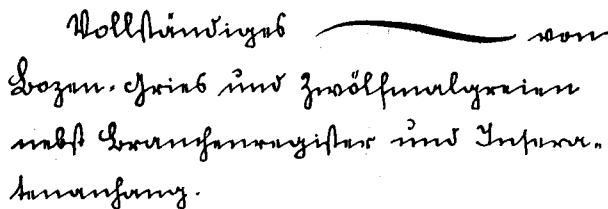 Vollständiges von
Bozen-Gries und Zwölfmalgreien
nebst Branchenregister und Insera-
tenanhang.